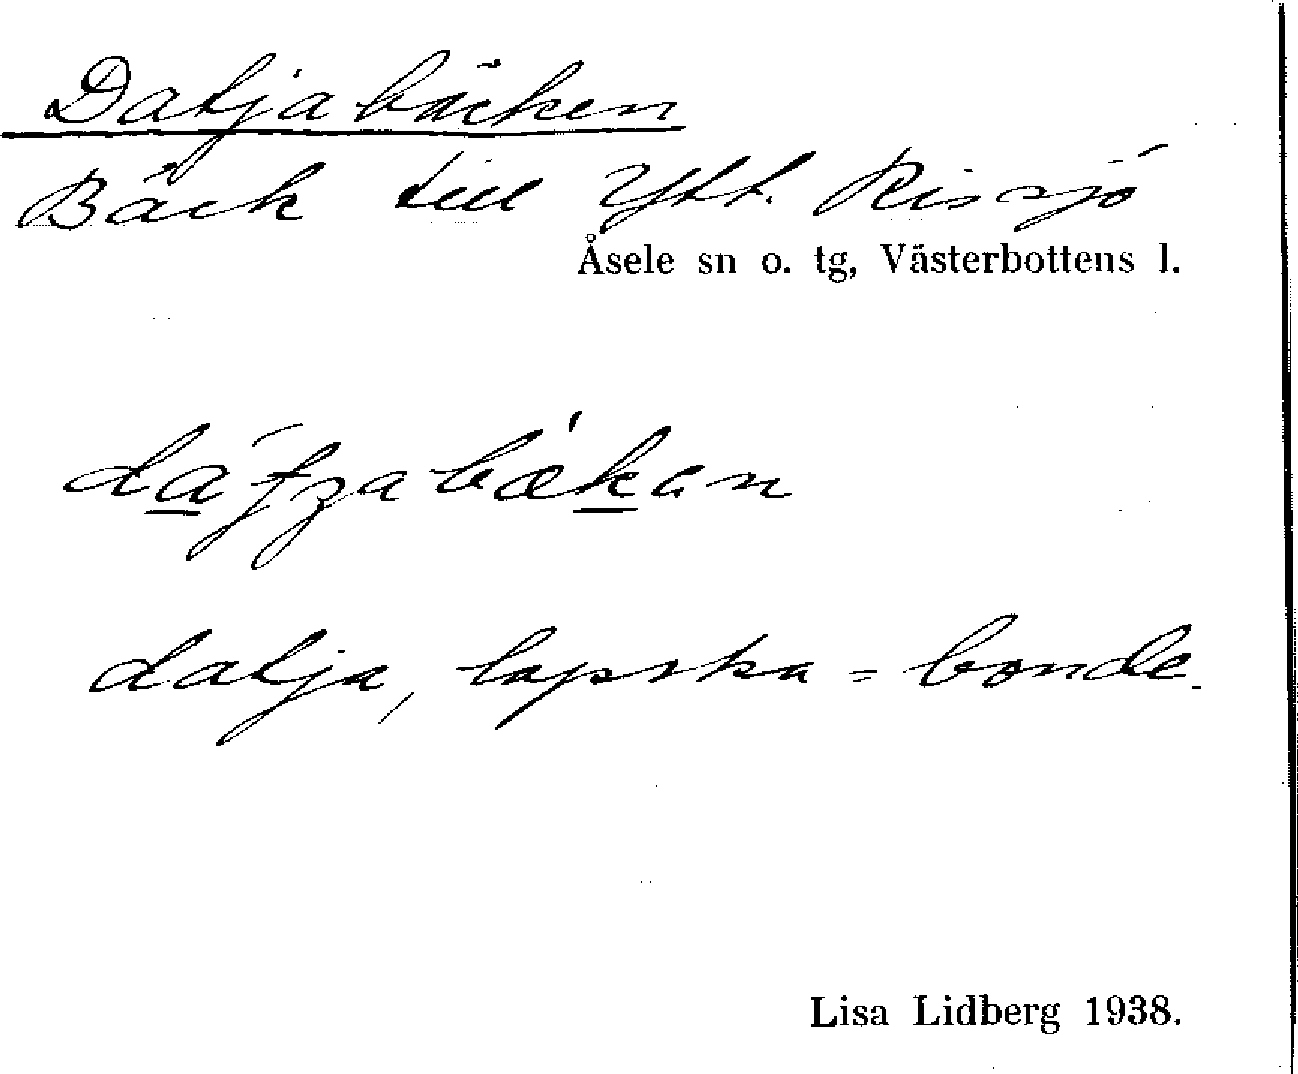 Datjabäcken
Bäck till Ytt. Rissjö
Åsele sn o. tg, Västerbottens l.
datja, lapska = bonde.
Lisa Lidberg 1938.